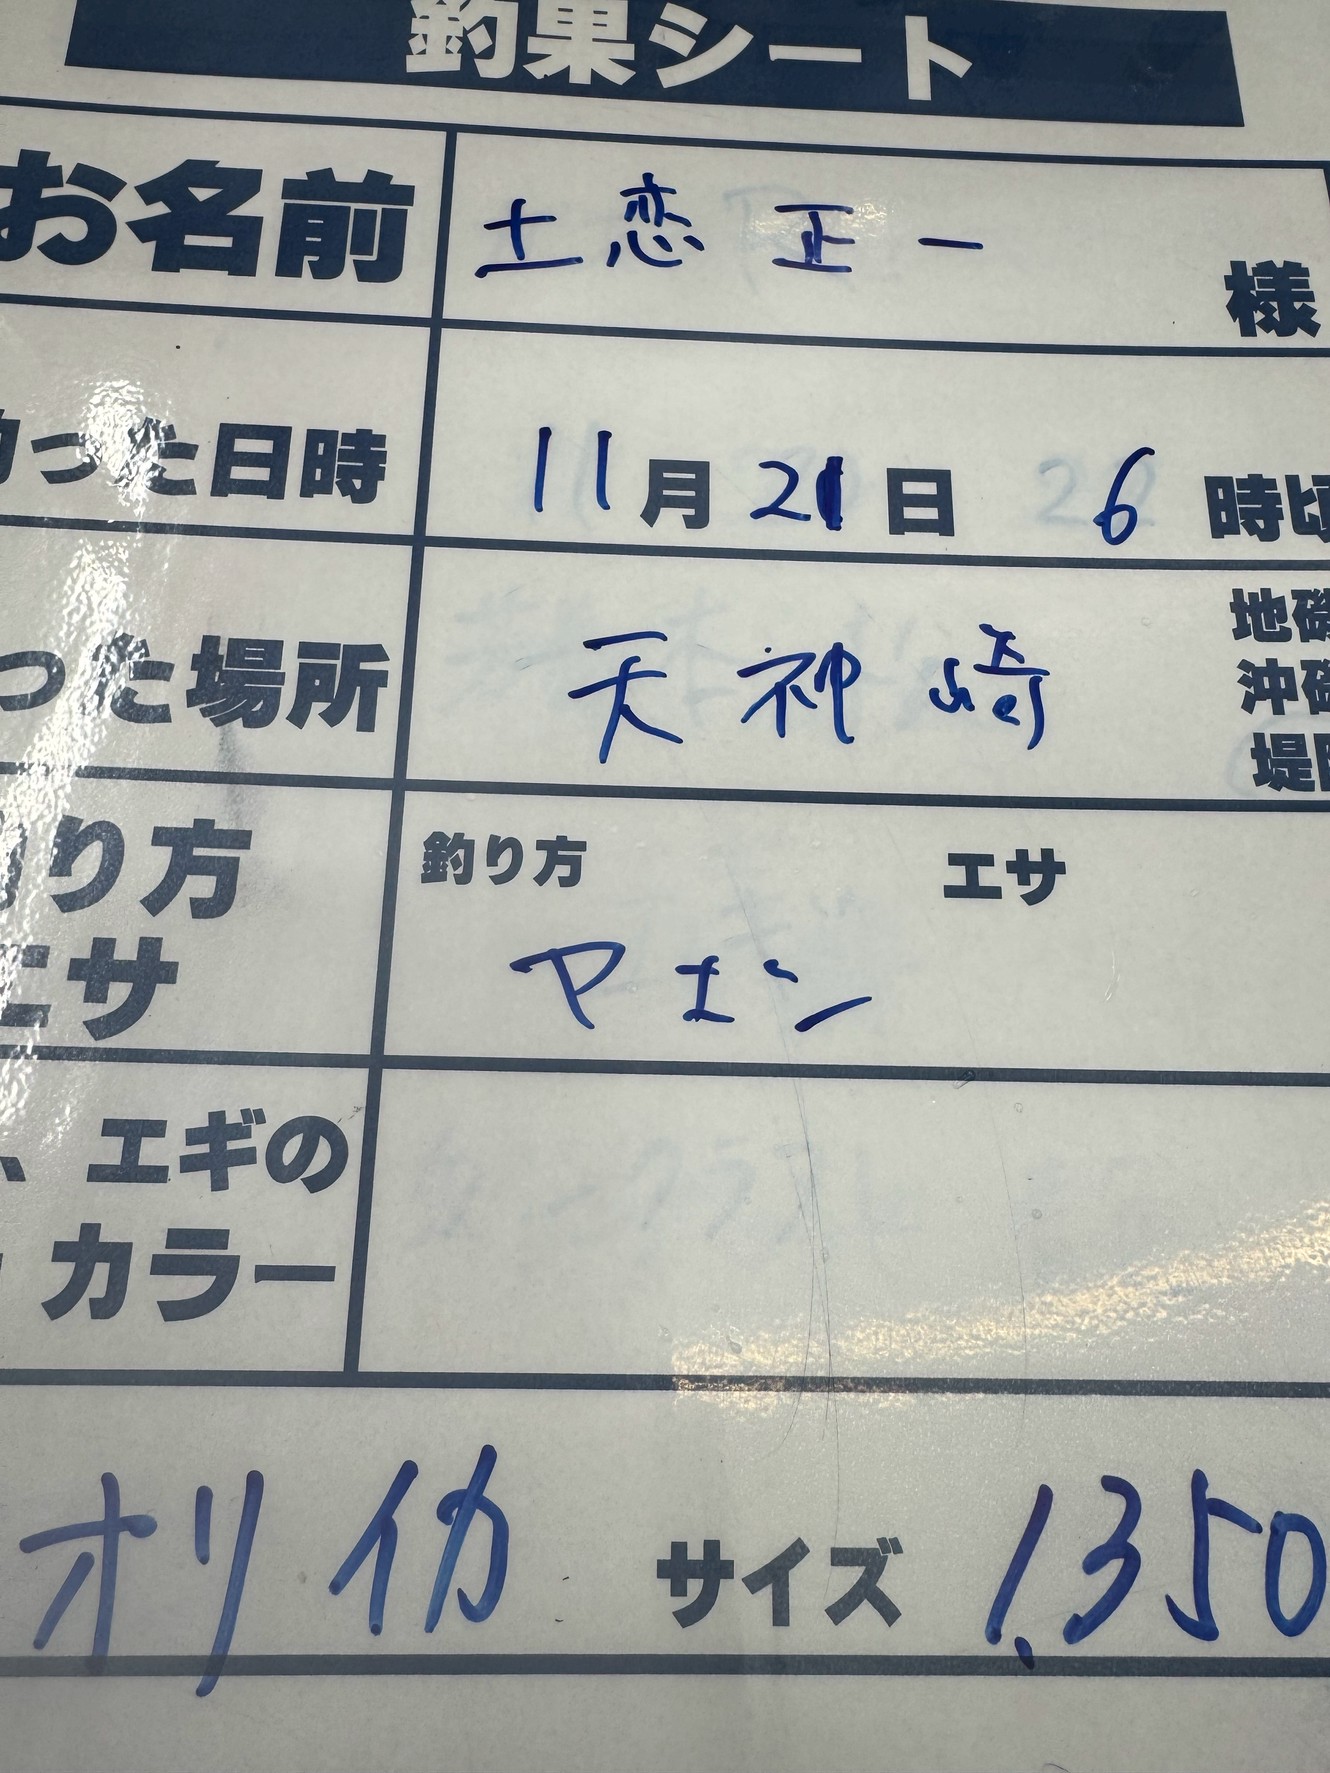 釣果シート
お名前 土恋 正一 様
釣った日時 11月21日 6時頃
った場所 天神崎 地磯
沖磯
堤防
釣り方 エサ
り方
エサ マエン
、エギの
カラー
オリイカ サイズ 1.350